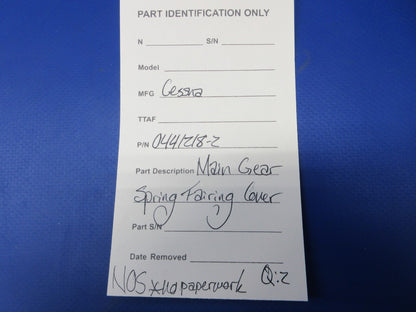 PART IDENTIFICATION ONLY
N S/N
Model
MFG Cessna
TTAF
P/N 0441218-2
Part Description Main Gear
Spring Fairing Cover
Part S/N
Date Removed
NOS *no paperwork Q:2